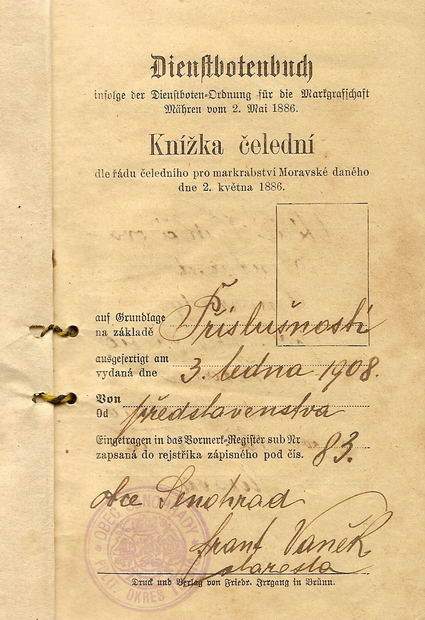 Dienstbotenbuch
infolge der Dienstboten-Ordnung für die Markgrafschaft
Mähren vom 2. Mai 1886.
Knížka čelední
dle řádu čeledního pro markrabství Moravské daného
dne 2. května 1886.
auf Grundlage
na základě Příslušnosti
ausgefertigt am
vydaná dne 3. ledna 1908.
Von
Od představenstva
Eingetragen in das Vormerk-Register sub Nr
zapsaná do rejstříka zápisného pod čís. 83.
obce Senohrad
frant Vaněk
starosta
Druck und Verlag von Friedr. Irrgang in Brünn.